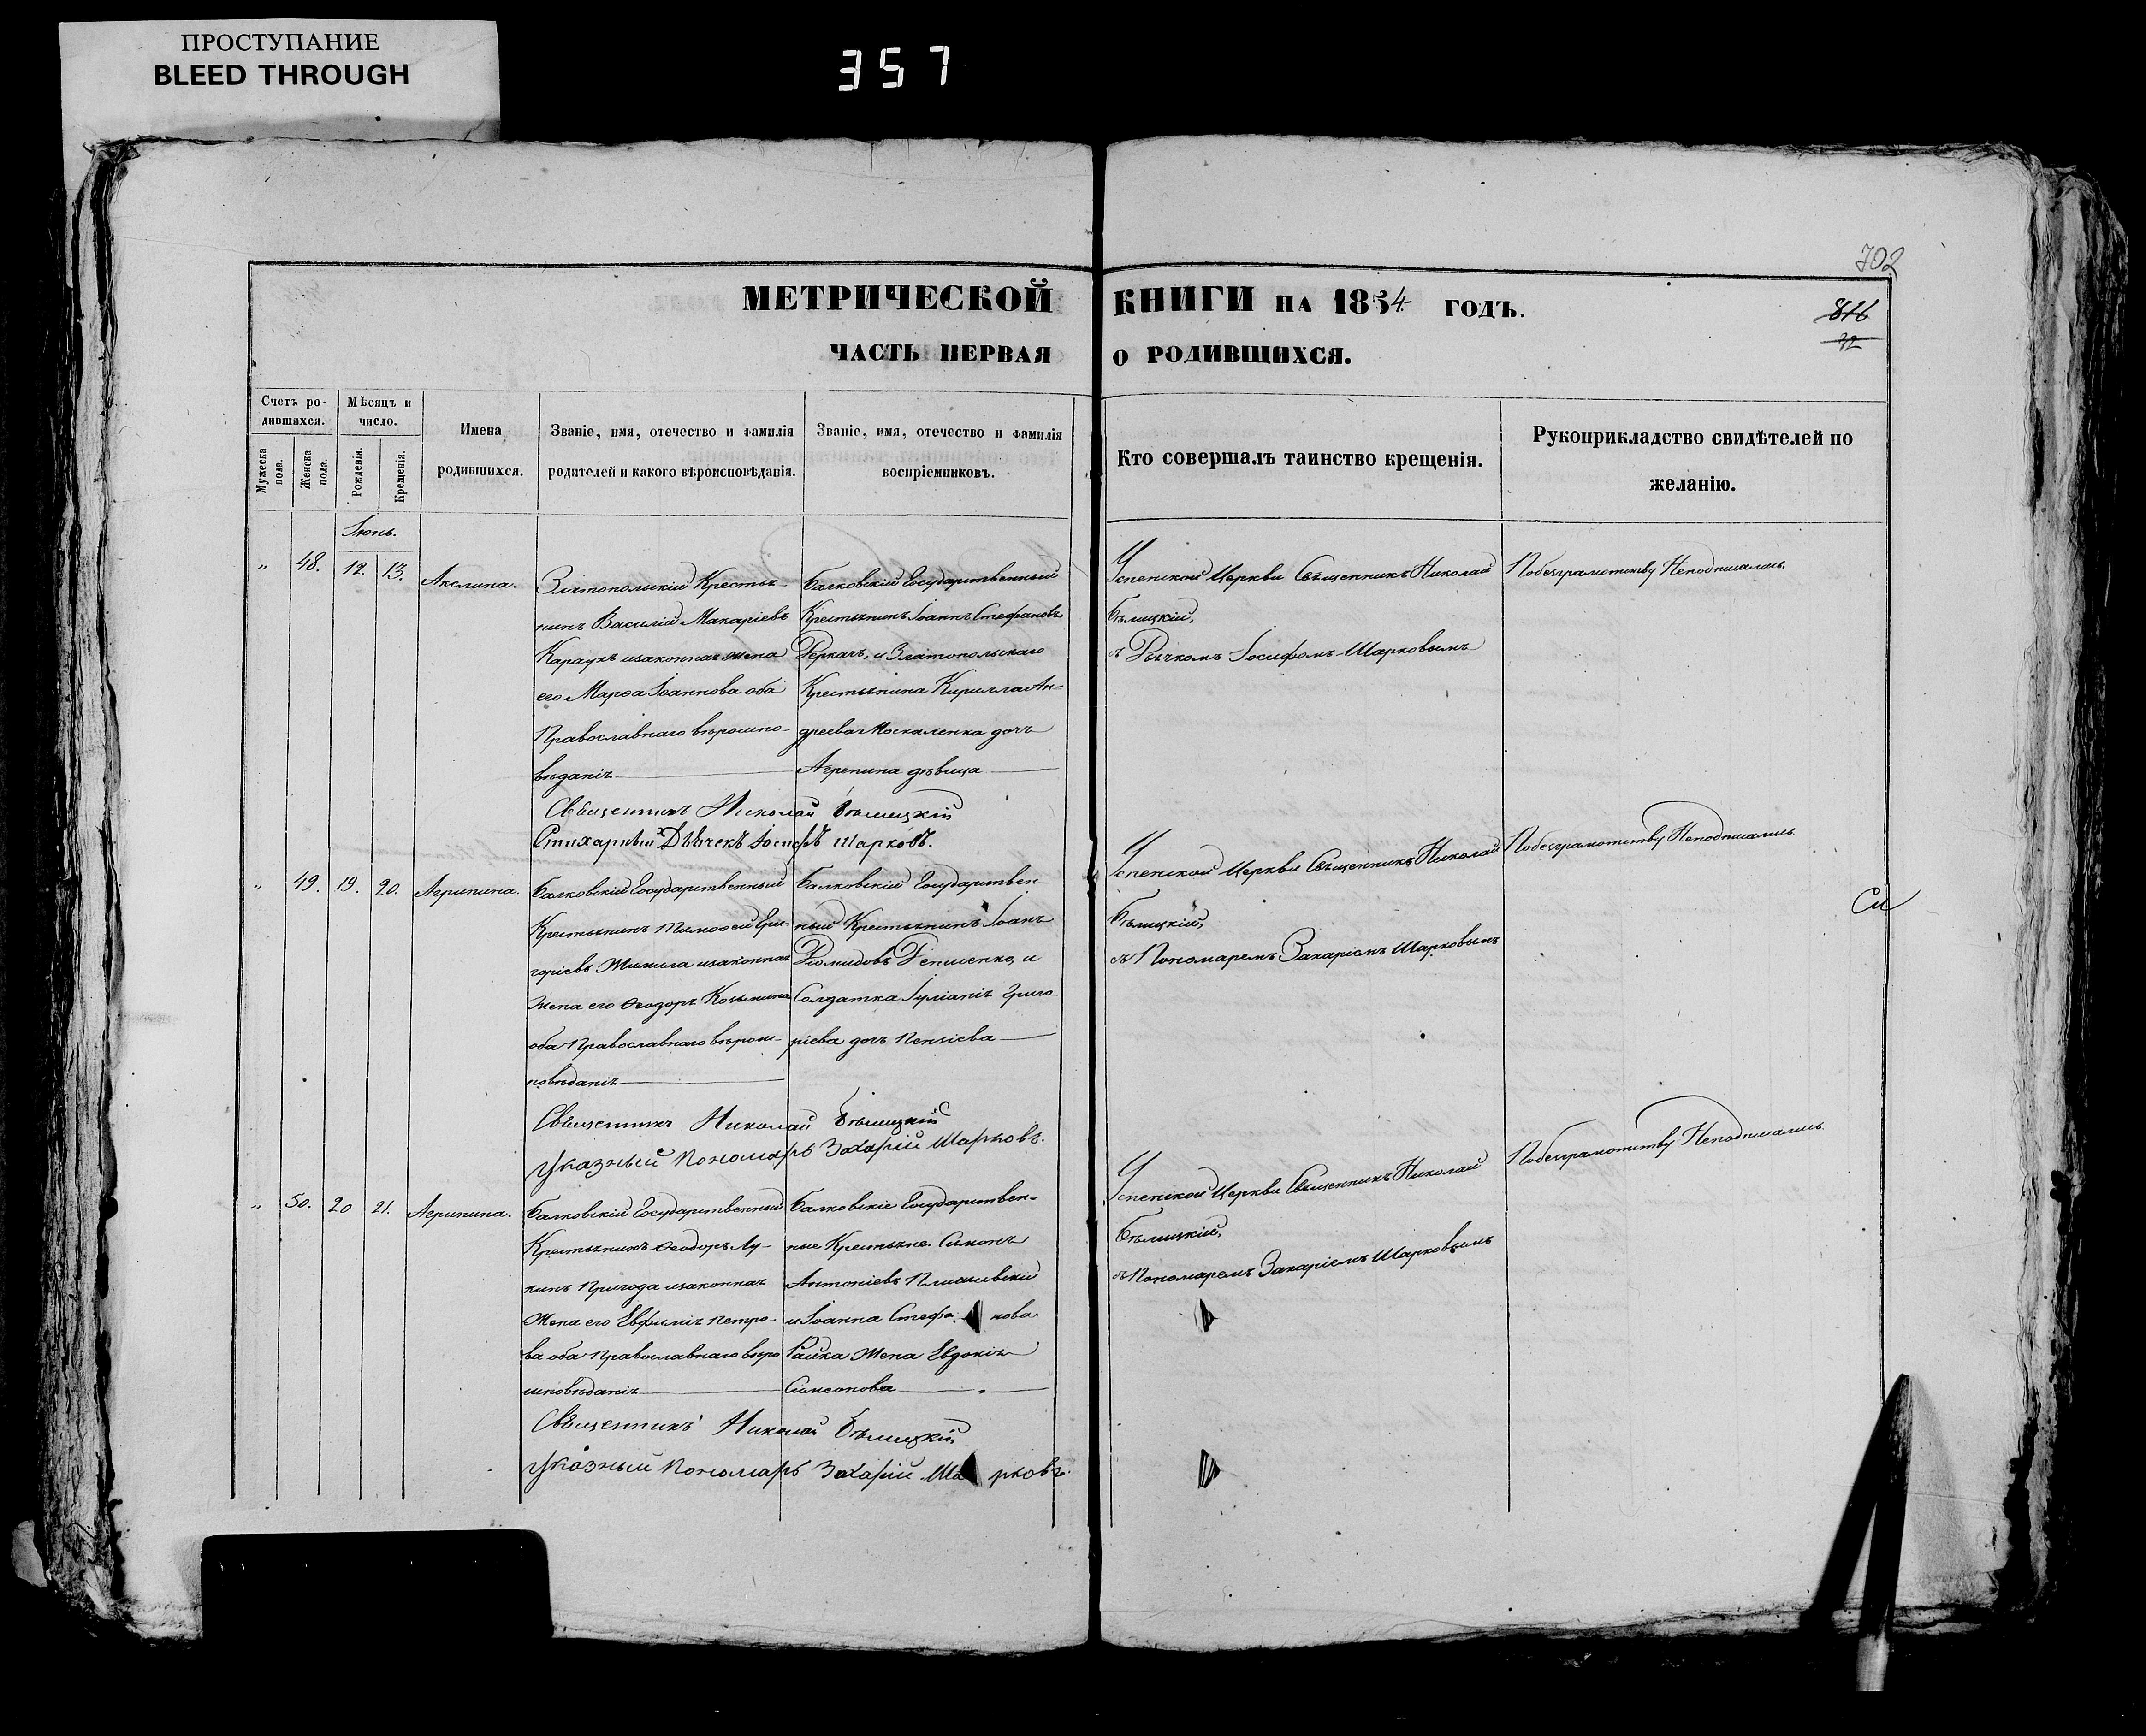 ПРОСТУПАНИЕ
BLEED THROUGH
357
702
МЕТРИЧЕСКОЙ КНИГИ НА 1854 ГОДЪ.
816
ЧАСТЬ ПЕРВАЯ О РОДИВШИХСЯ.
Счетъ родившихся.
Мужеска пола.
Женска пола.
Мѣсяцъ и число.
Рожденія.
Крещенія.
Имена родившихся.
Званіе, имя, отечество и фамилія
родителей и какого вѣроисповѣданія.
Званіе, имя, отечество и фамилія
воспріемниковъ.
Кто совершалъ таинство крещенія.
Рукоприкладство свидѣтелей по
желанію.
Іюнь.
„ 48. 12. 13. Акелина.
Златопольскій Крестья-
нинъ Василій Макаріевъ
Караукъ изаконная жена
его Марѳа Іоаннова оба
Православнаго вѣроиспо-
вѣданія
Балковскій Государственный
Крестьянинъ Іоаннъ Стефановъ
Деркачъ, и Златопольскаго
Крестьянина Кирилла Ан-
дреева Москаленка дочь
Агрепина дѣвица
Успенской Церкви Священникъ Николай
Бѣлицкій,
съ Дьячкомъ Іосифомъ Шарковымъ
Побезграмотству Неподписались.
Священникъ Николай Бѣлицкій
Стихарный Дьячекъ Іосифъ Шарковъ.
„ 49. 19. 20. Агрипина.
Балковскій Государственный
Крестьянинъ Тимоѳей Гри-
горіевъ изаконная
жена его Ѳеодора Козьмина
оба Православнаго вѣрои-
повѣданія
Балковскій Государствен-
ный Крестьянинъ Іоанъ
Діомидовъ Денисенко, и
Солдатка Іуліанія Григо-
ріева дочь
Успенской Церкви Священникъ Николай
Бѣлицкій,
съ Пономаремъ Захаріемъ Шарковымъ
Побезграмотству Неподписались
Священникъ Николай Бѣлицкій
Указный Пономарь Захарій Шарковъ.
„ 50. 20 21. Агрипина.
Балковскій Государственный
Крестьянинъ Ѳеодоръ Лу-
кинъ Пригода изаконная
Жена его Евфимія Петро-
ва оба Православнаго вѣро
исповѣданія
Балковскіе Государствен-
ные Крестьяне. Симонъ
Антоніевъ
и Іоанна Стефанова
Райка Жена Евдокія
Симеонова
Успенской Церкви Священникъ Николай
Бѣлицкій,
съ Пономаремъ Захаріемъ Шарковымъ
Побезграмотству Неподписались.
Священникъ Николай Бѣлицкій
Указный Пономарь Захарій Шарковъ.